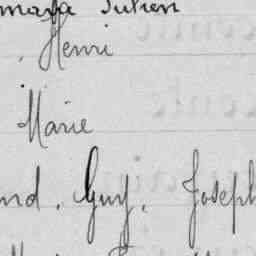 Julien
Henri
Marie
nd, Guy, Joseph